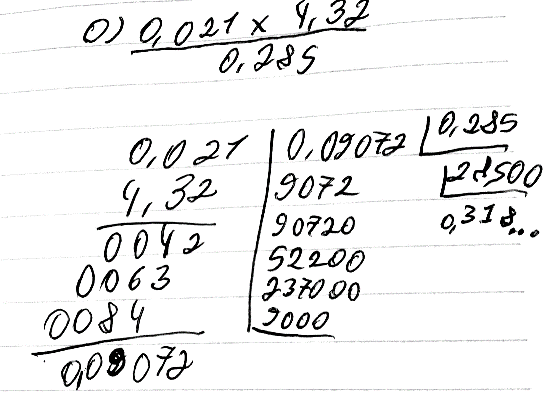 o) 0,021 x 4,32
0,285
0,021
4,32
0042
0063
0084
0,09072
0,09072 0,285
9072 28500
90720 0,318...
52200
237000
9000